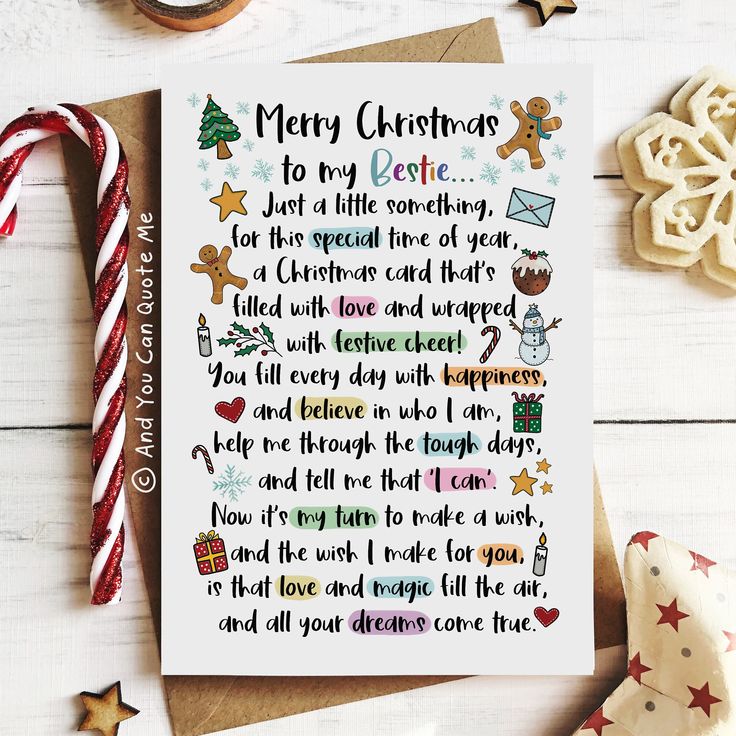 Merry Christmas
to my Bestie...
Just a little something,
for this special time of year,
a Christmas card that's
filled with love and wrapped
with festive cheer!
You fill every day with happiness,
and believe in who I am,
help me through the tough days,
and tell me that 'I can'.
Now it's my turn to make a wish,
and the wish I make for you,
is that love and magic fill the air,
and all your dreams come true.
© And You Can Quote Me